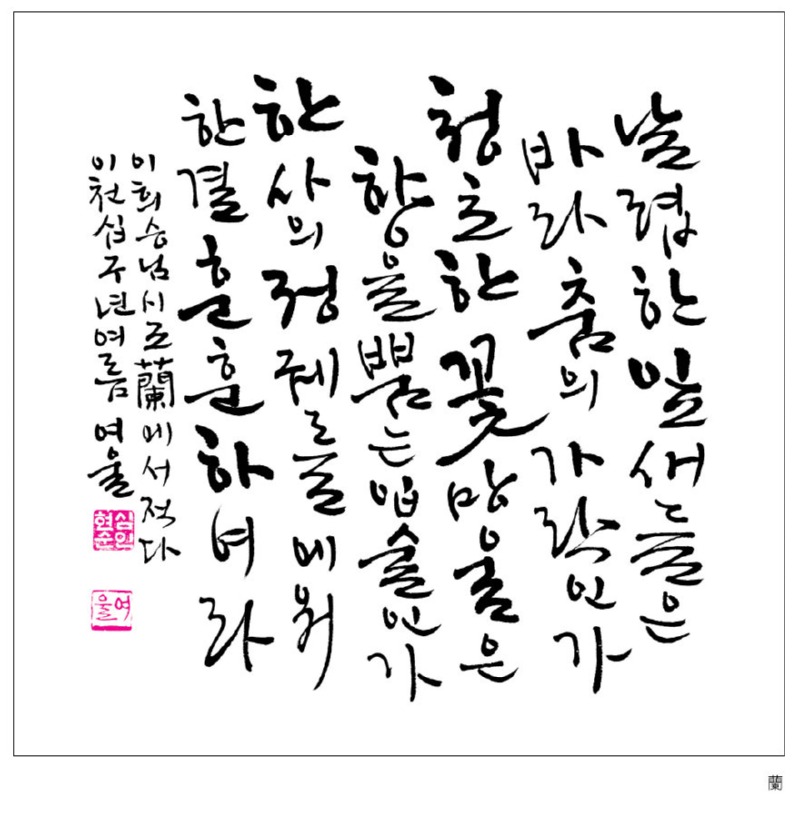 날렵한 잎새들은
바라춤의 가락인가
청초한 꽃망울은
향을 뿜는 입술인가
한사의 정궤를 에워
한결 훈훈하여라
이희승님 시조 蘭에서 적다
이천십구년 여름 여울
심인현순
여울
蘭